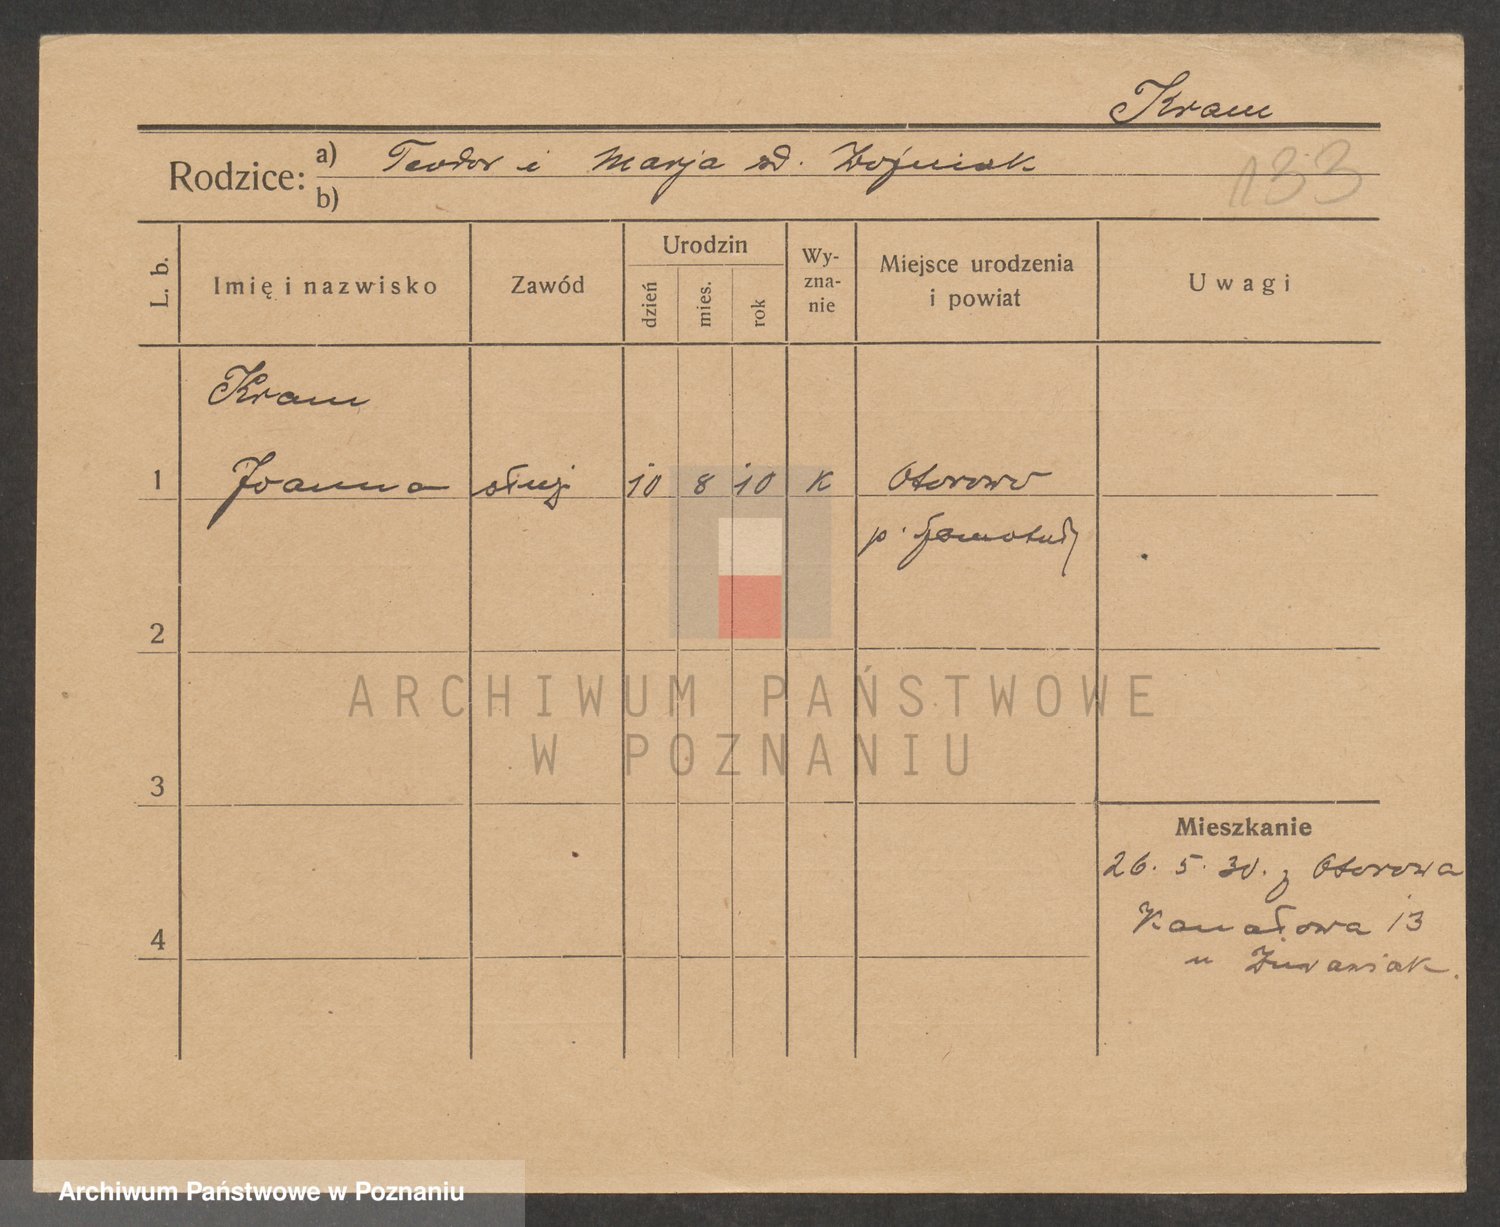 Kram
Rodzice: a) Teodor i Marja zd. Woźniak
b)
133
L. b.
Imię i nazwisko
Zawód
Urodzin
dzień
mies.
rok
Wy-
zna-
nie
Miejsce urodzenia
i powiat
Uwagi
Kram
1 Joanna służ 10 8 10 K Otorowo
p. Szamotuły
2
3
4
Mieszkanie
26. 5. 30. z Otorowa
Kanałowa 13
u
ARCHIWUM PAŃSTWOWE
W POZNANIU
Archiwum Państwowe w Poznaniu